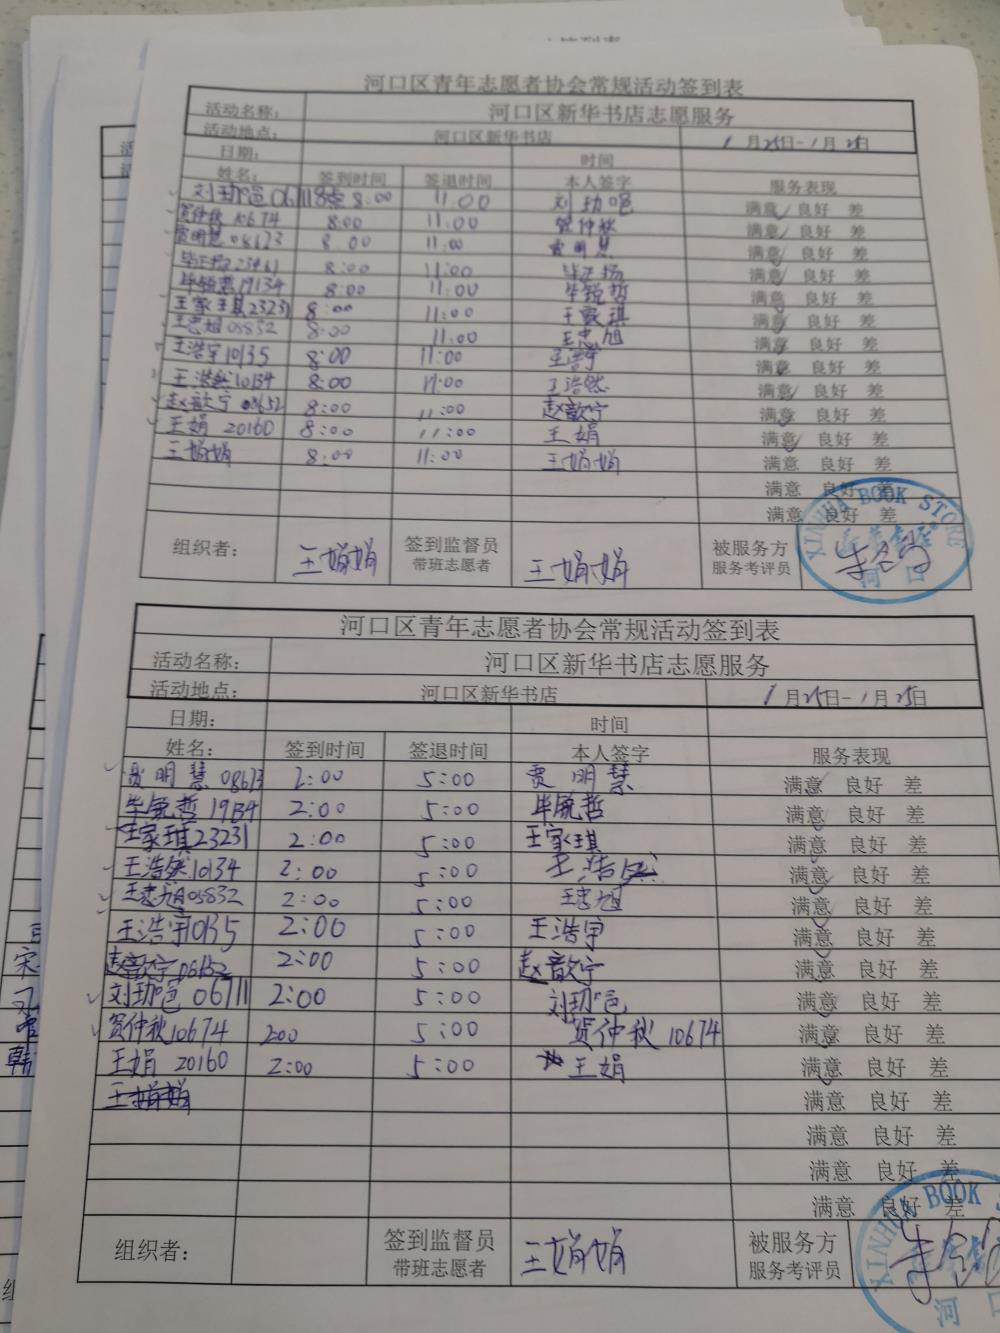 河口区青年志愿者协会常规活动签到表
活动名称： 河口区新华书店志愿服务
活动地点： 河口区新华书店 1月25日-1月25日
日期： 时间
姓名： 签到时间 签退时间 本人签字 服务表现
刘劲邑 06711 8:00 11:00 刘劲邑 满意 良好 差
贺仲秋 10674 8:00 11:00 贺仲秋 满意 良好 差
贾明慧 08673 8:00 11:00 贾明慧 满意 良好 差
23461 8:00 11:00 满意 良好 差
毕毓哲 19134 8:00 11:00 毕毓哲 满意 良好 差
王家琪 23231 8:00 11:00 王家琪 满意 良好 差
王忠旭 08832 8:00 11:00 王忠旭 满意 良好 差
王浩宇 10135 8:00 11:00 王浩宇 满意 良好 差
王浩然 10134 8:00 11:00 王浩然 满意 良好 差
赵歆宁 08652 8:00 11:00 赵歆宁 满意 良好 差
王娟 20160 8:00 11:00 王娟 满意 良好 差
王娟娟 8:00 11:00 王娟娟 满意 良好 差
满意 良好 差
满意 良好 差
组织者： 王娟娟 签到监督员 王娟娟 被服务方
带班志愿者 服务考评员
XINHUA BOOK STORE
河口
河口区青年志愿者协会常规活动签到表
活动名称： 河口区新华书店志愿服务
活动地点： 河口区新华书店 1月25日-1月25日
日期： 时间
姓名： 签到时间 签退时间 本人签字 服务表现
贾明慧 08673 2:00 5:00 贾明慧 满意 良好 差
毕毓哲 19134 2:00 5:00 毕毓哲 满意 良好 差
王家琪 23231 2:00 5:00 王家琪 满意 良好 差
王浩然 10134 2:00 5:00 王浩然 满意 良好 差
王忠旭 08832 2:00 5:00 王忠旭 满意 良好 差
王浩宇 10135 2:00 5:00 王浩宇 满意 良好 差
赵歆宁 2:00 5:00 赵歆宁 满意 良好 差
刘劲邑 06711 2:00 5:00 刘劲邑 满意 良好 差
贺仲秋 10674 200 5:00 贺仲秋 10674 满意 良好 差
王娟 20160 2:00 5:00 王娟 满意 良好 差
王娟娟 满意 良好 差
满意 良好 差
满意 良好 差
满意 良好 差
组织者： 签到监督员 王娟娟 被服务方
带班志愿者 服务考评员
XINHUA BOOK
河口